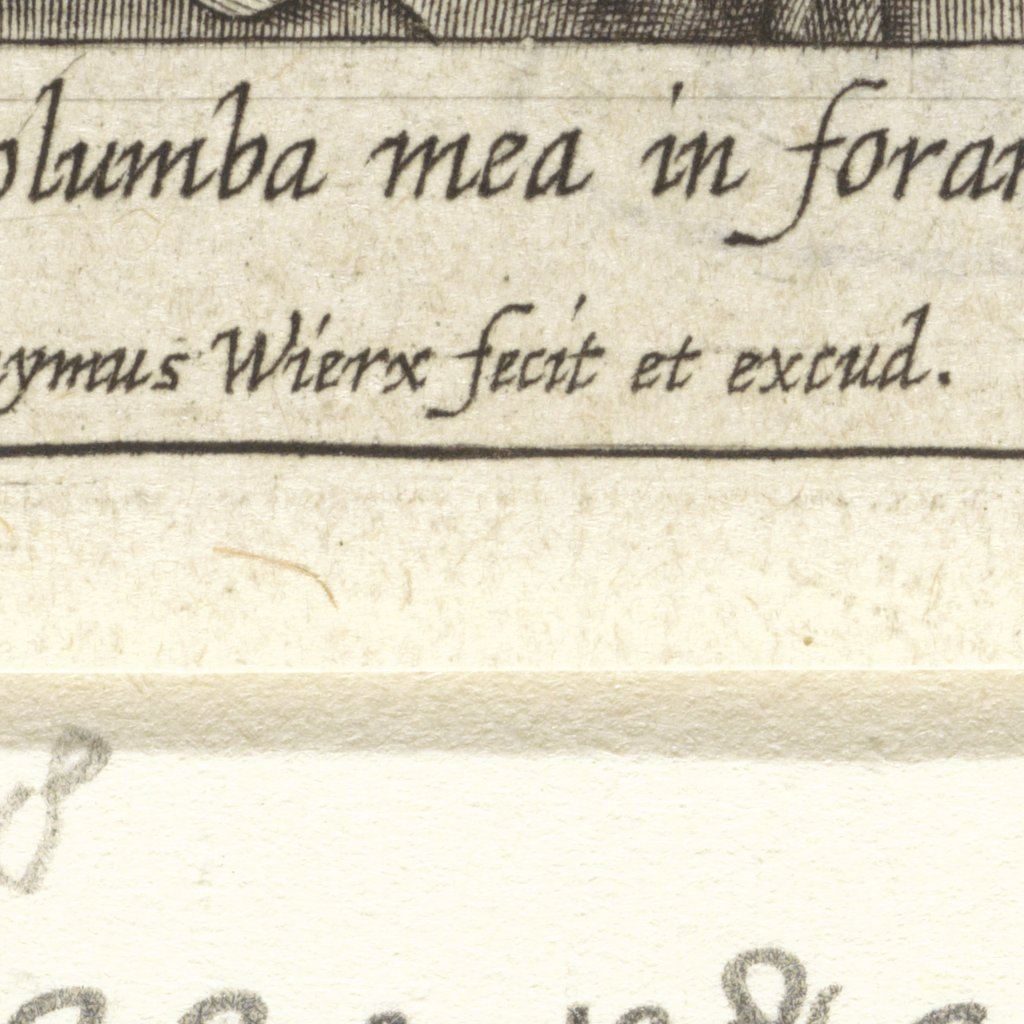 olumba mea in foran
ymus Wierx fecit et excud.
8